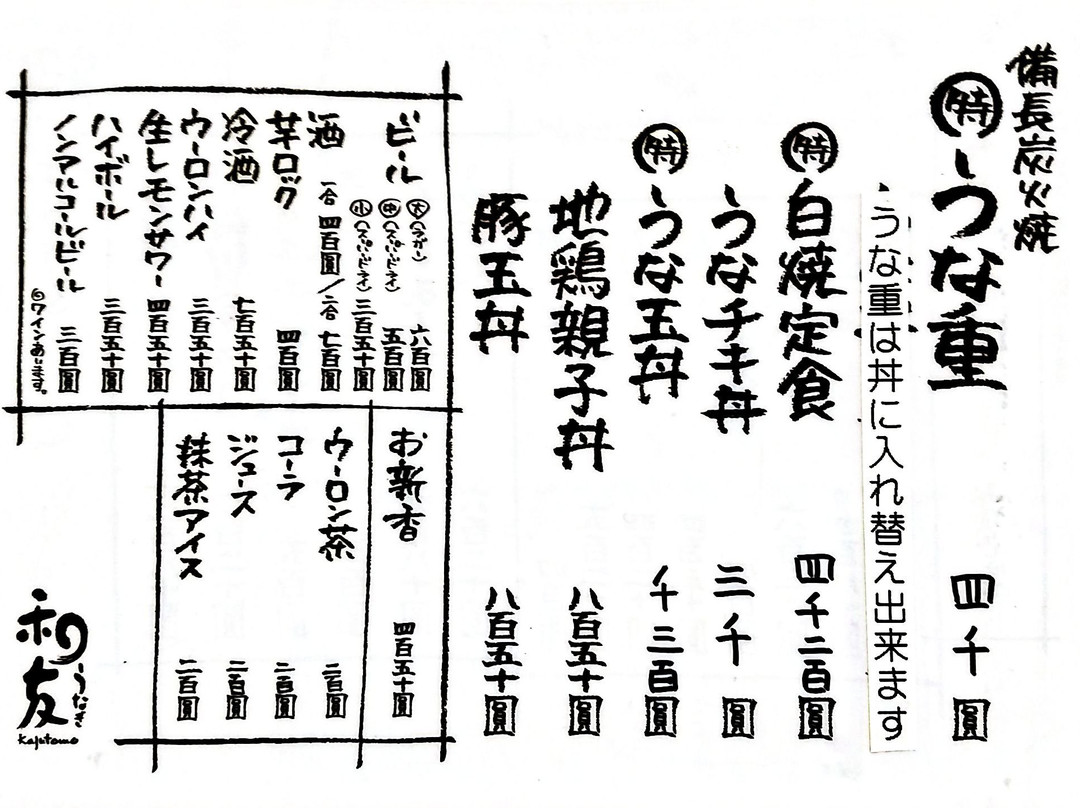 備長炭火焼
特 うな重 四千圓
うな重は丼に入れ替え出来ます
特 白焼定食 四千二百圓
うなチキ丼 三千圓
特 うな玉丼 千三百圓
地鶏親子丼 八百五十圓
豚玉丼 八百五十圓
ビール 大 六百圓
中 (スーパードライ) 五百圓
小 (スーパードライ) 三百五十圓
酒 一合 四百圓/二合 七百圓
芋ロック 四百圓
冷酒 七百五十圓
ウーロンハイ 三百五十圓
生レモンサワー 四百五十圓
ハイボール 三百五十圓
ノンアルコールビール 三百圓
◎ワインあります。
お新香 四百五十圓
ウーロン茶 二百圓
コーラ 二百圓
ジュース 二百圓
抹茶アイス 二百圓
和友
うなぎ
Kajutomo